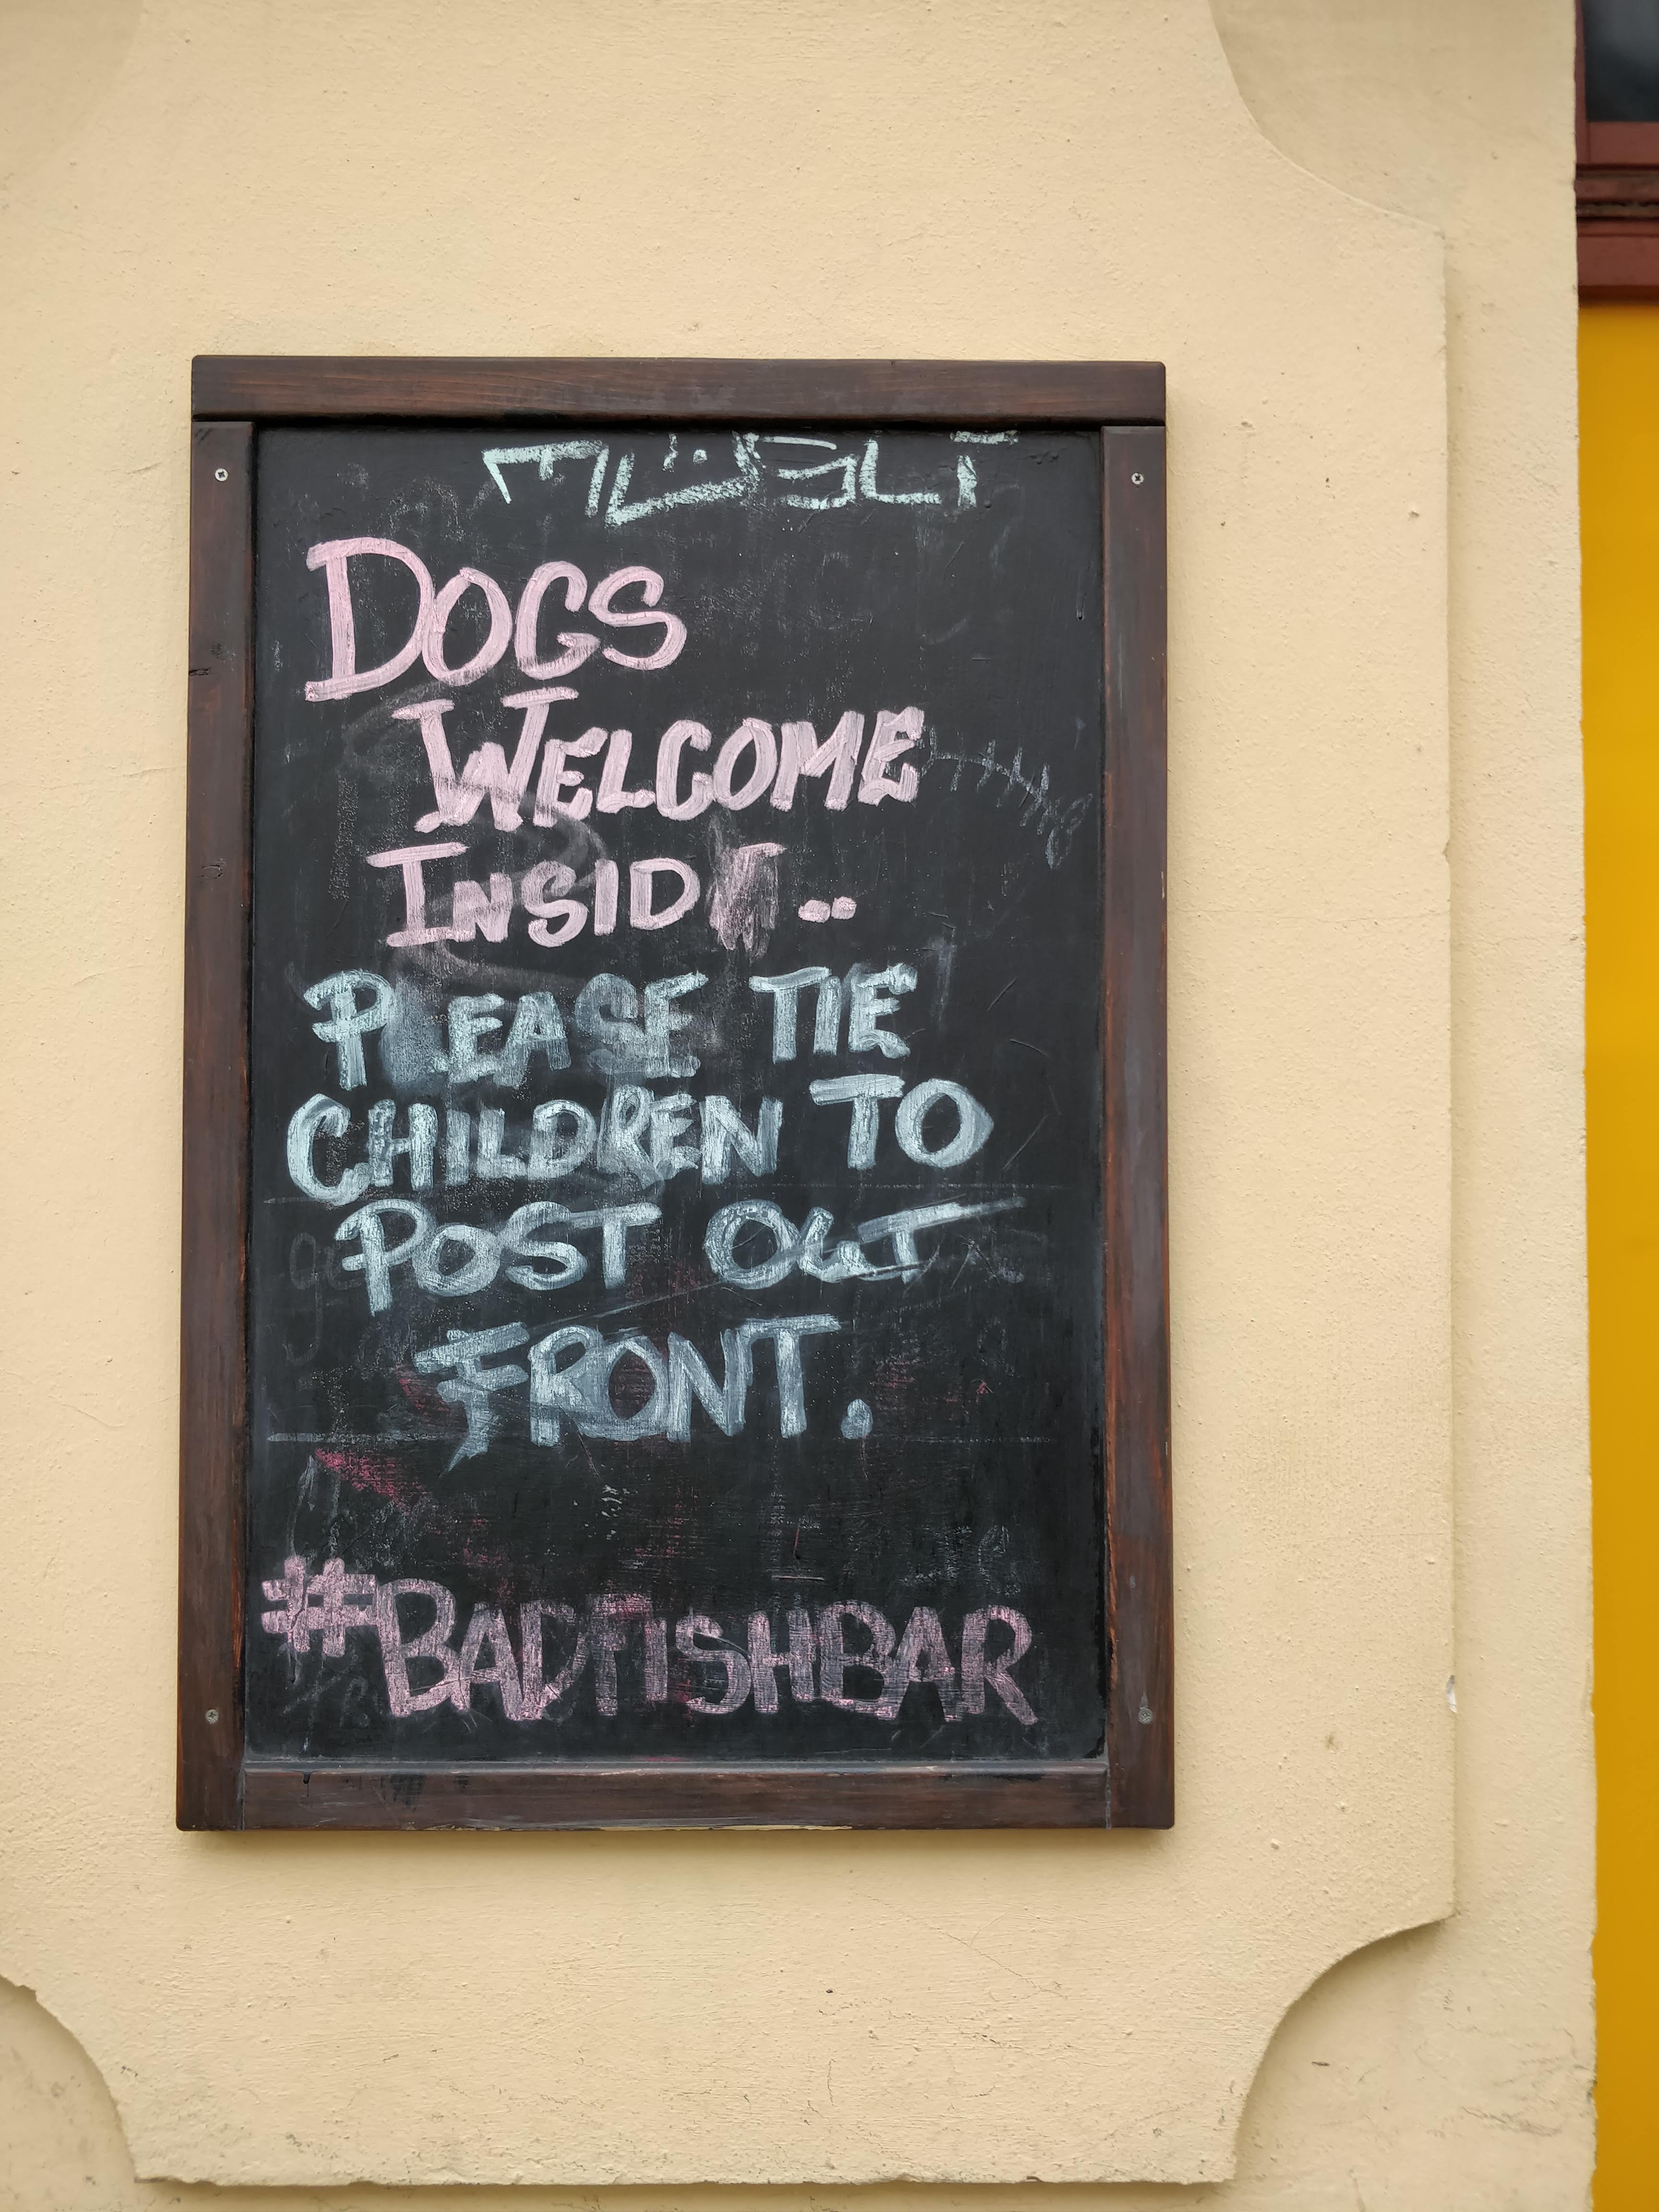 DOGS
WELCOME
INSIDE..
PLEASE TIE
CHILDREN TO
POST OUT
FRONT.
#BADFISHBAR